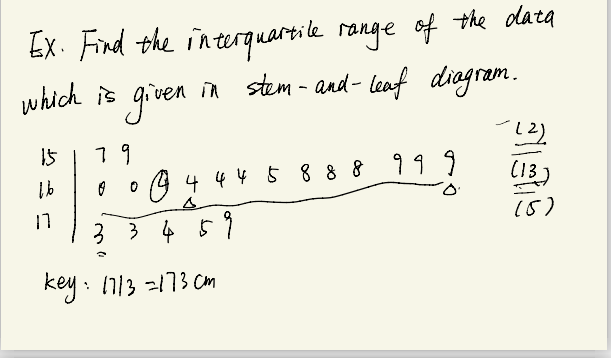 Ex. Find the interquartile range of the data
which is given in stem-and-leaf diagram.
15 | 7 9 (2)
16 | 0 0 4 4 4 4 5 8 8 8 9 9 9 (13)
17 | 3 3 4 5 9 (5)
key: 17|3 = 173 cm